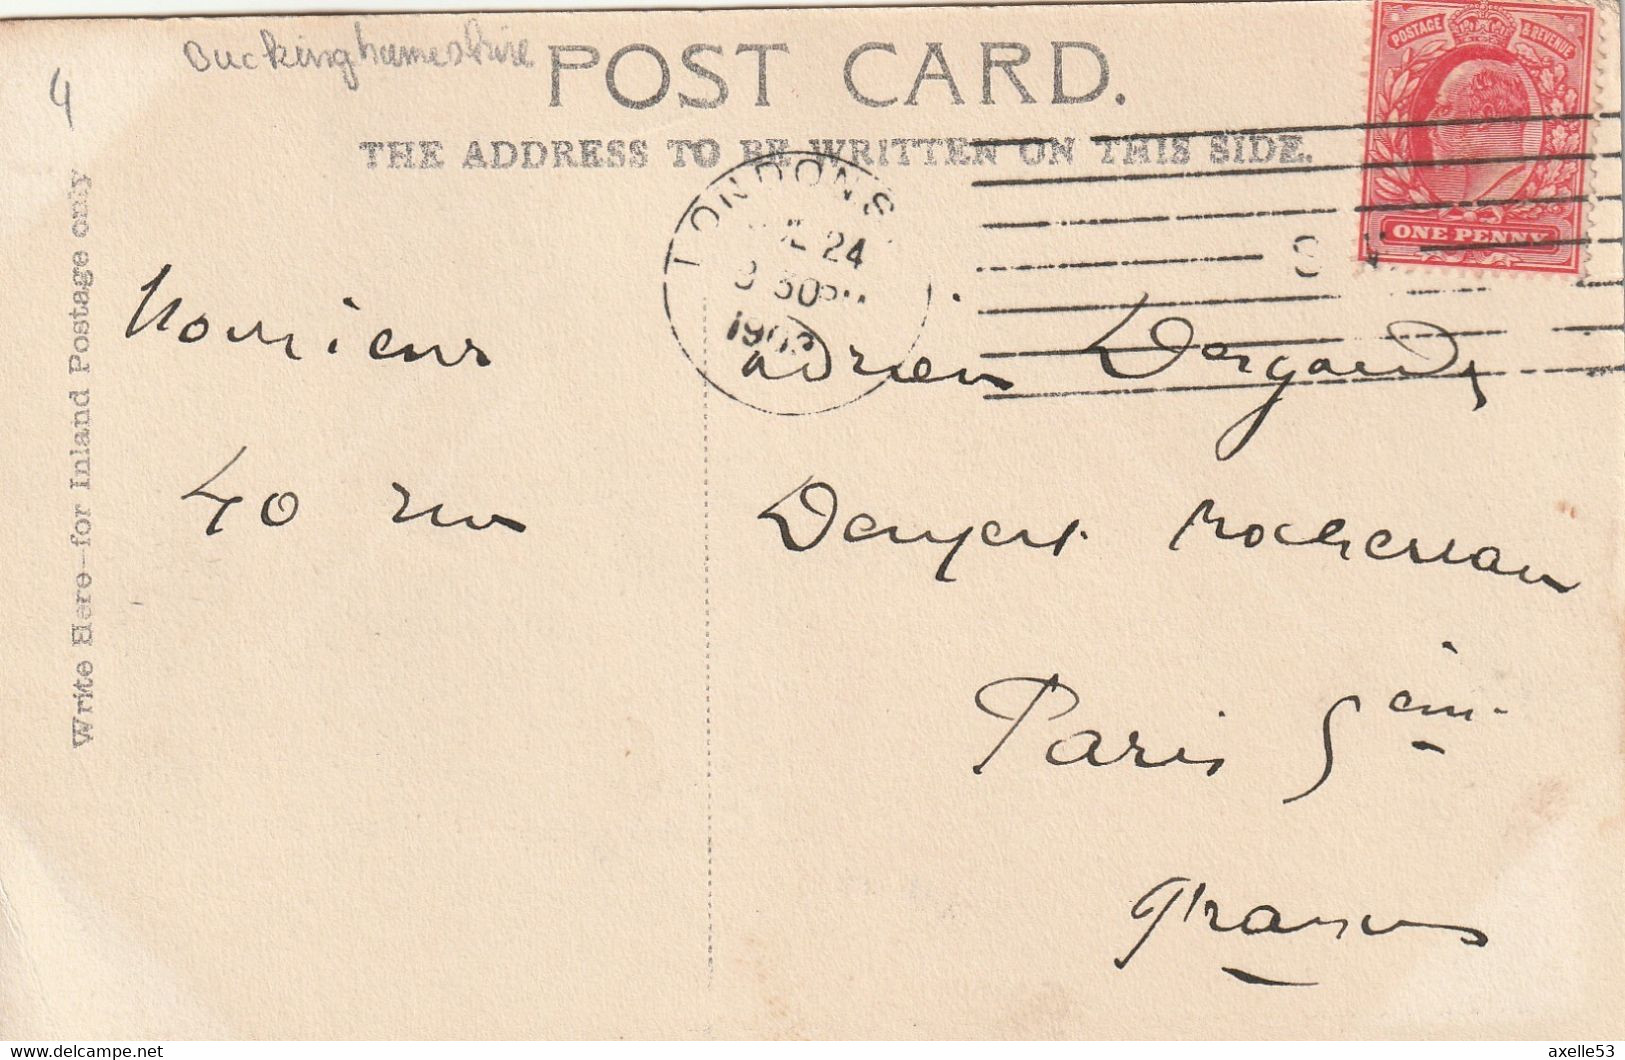 4
Buckinghamshire
POST CARD.
THE ADDRESS TO BE WRITTEN ON THIS SIDE.
POSTAGE & REVENUE
ONE PENNY
LONDON S
24
Write Here—for Inland Postage only
Monsieur Adrien
40 rue Denfert Rochereau
Paris 5em
France
axelle53
delcampe.net